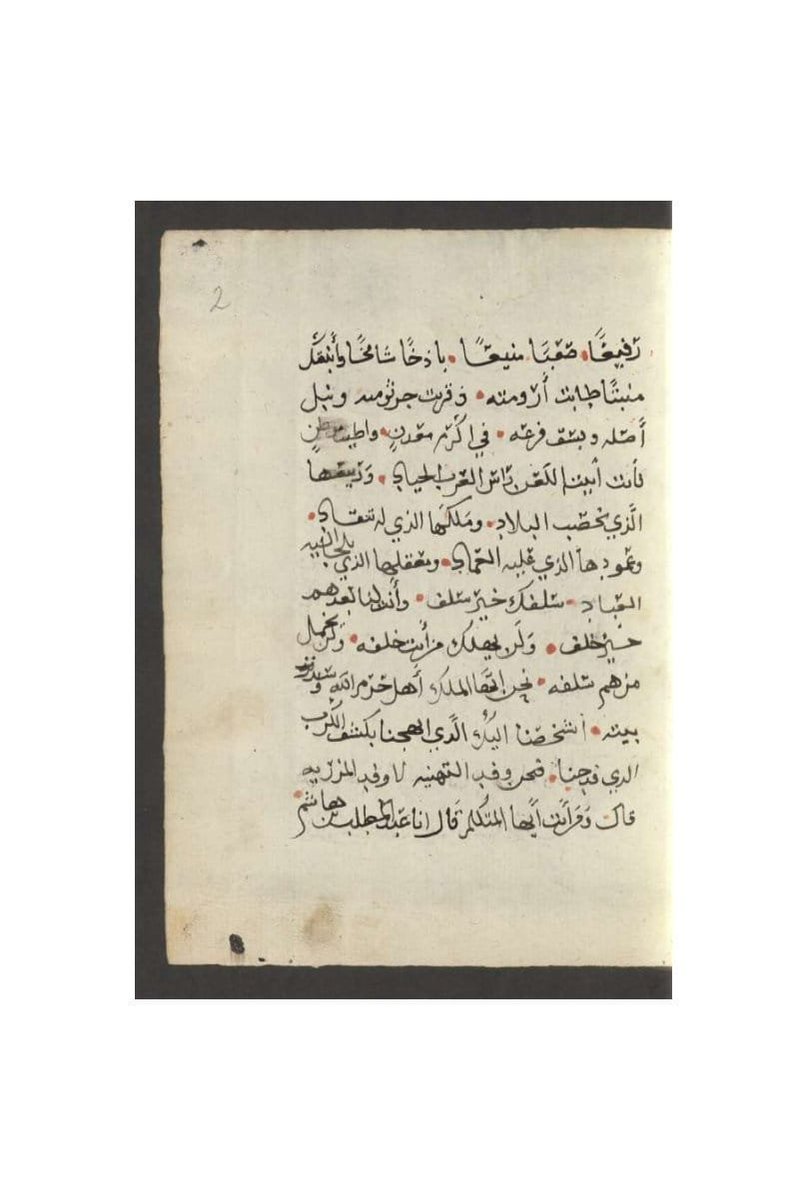 2
رفيعًا صعبًا منيعًا باذخًا شامخًا وأنبتك
منبتًا طابت أرومته وقرت جرثومته ونبل
أصله وبسق فرعه في اكرم معدن واطيب موطن
فأنت أبيت اللعن راس العرب الحيا وربيعها
الَّذي تخصب البلاد وملكها الذي له تنقاد
وعمودها الذي عليه العماد ومعقلها الذي يلجا اليه
العباد سلفك خير سلف وأنت لنا بعدهم
خير خلف ولن يهلك من أنت خلفه ولن يخمل
من هم سلفه نحن ايّها الملك أهل حرم الله وسدنة
بيته أشخصنا اليك الَّذي ابهجنا بكشف الكرب
الذي فدحنا فنحن وفد التهنيه لا وفد المرزيه
قال ومَن أنت أيها المتكلم قال انا عبد المطلب بن هاشم